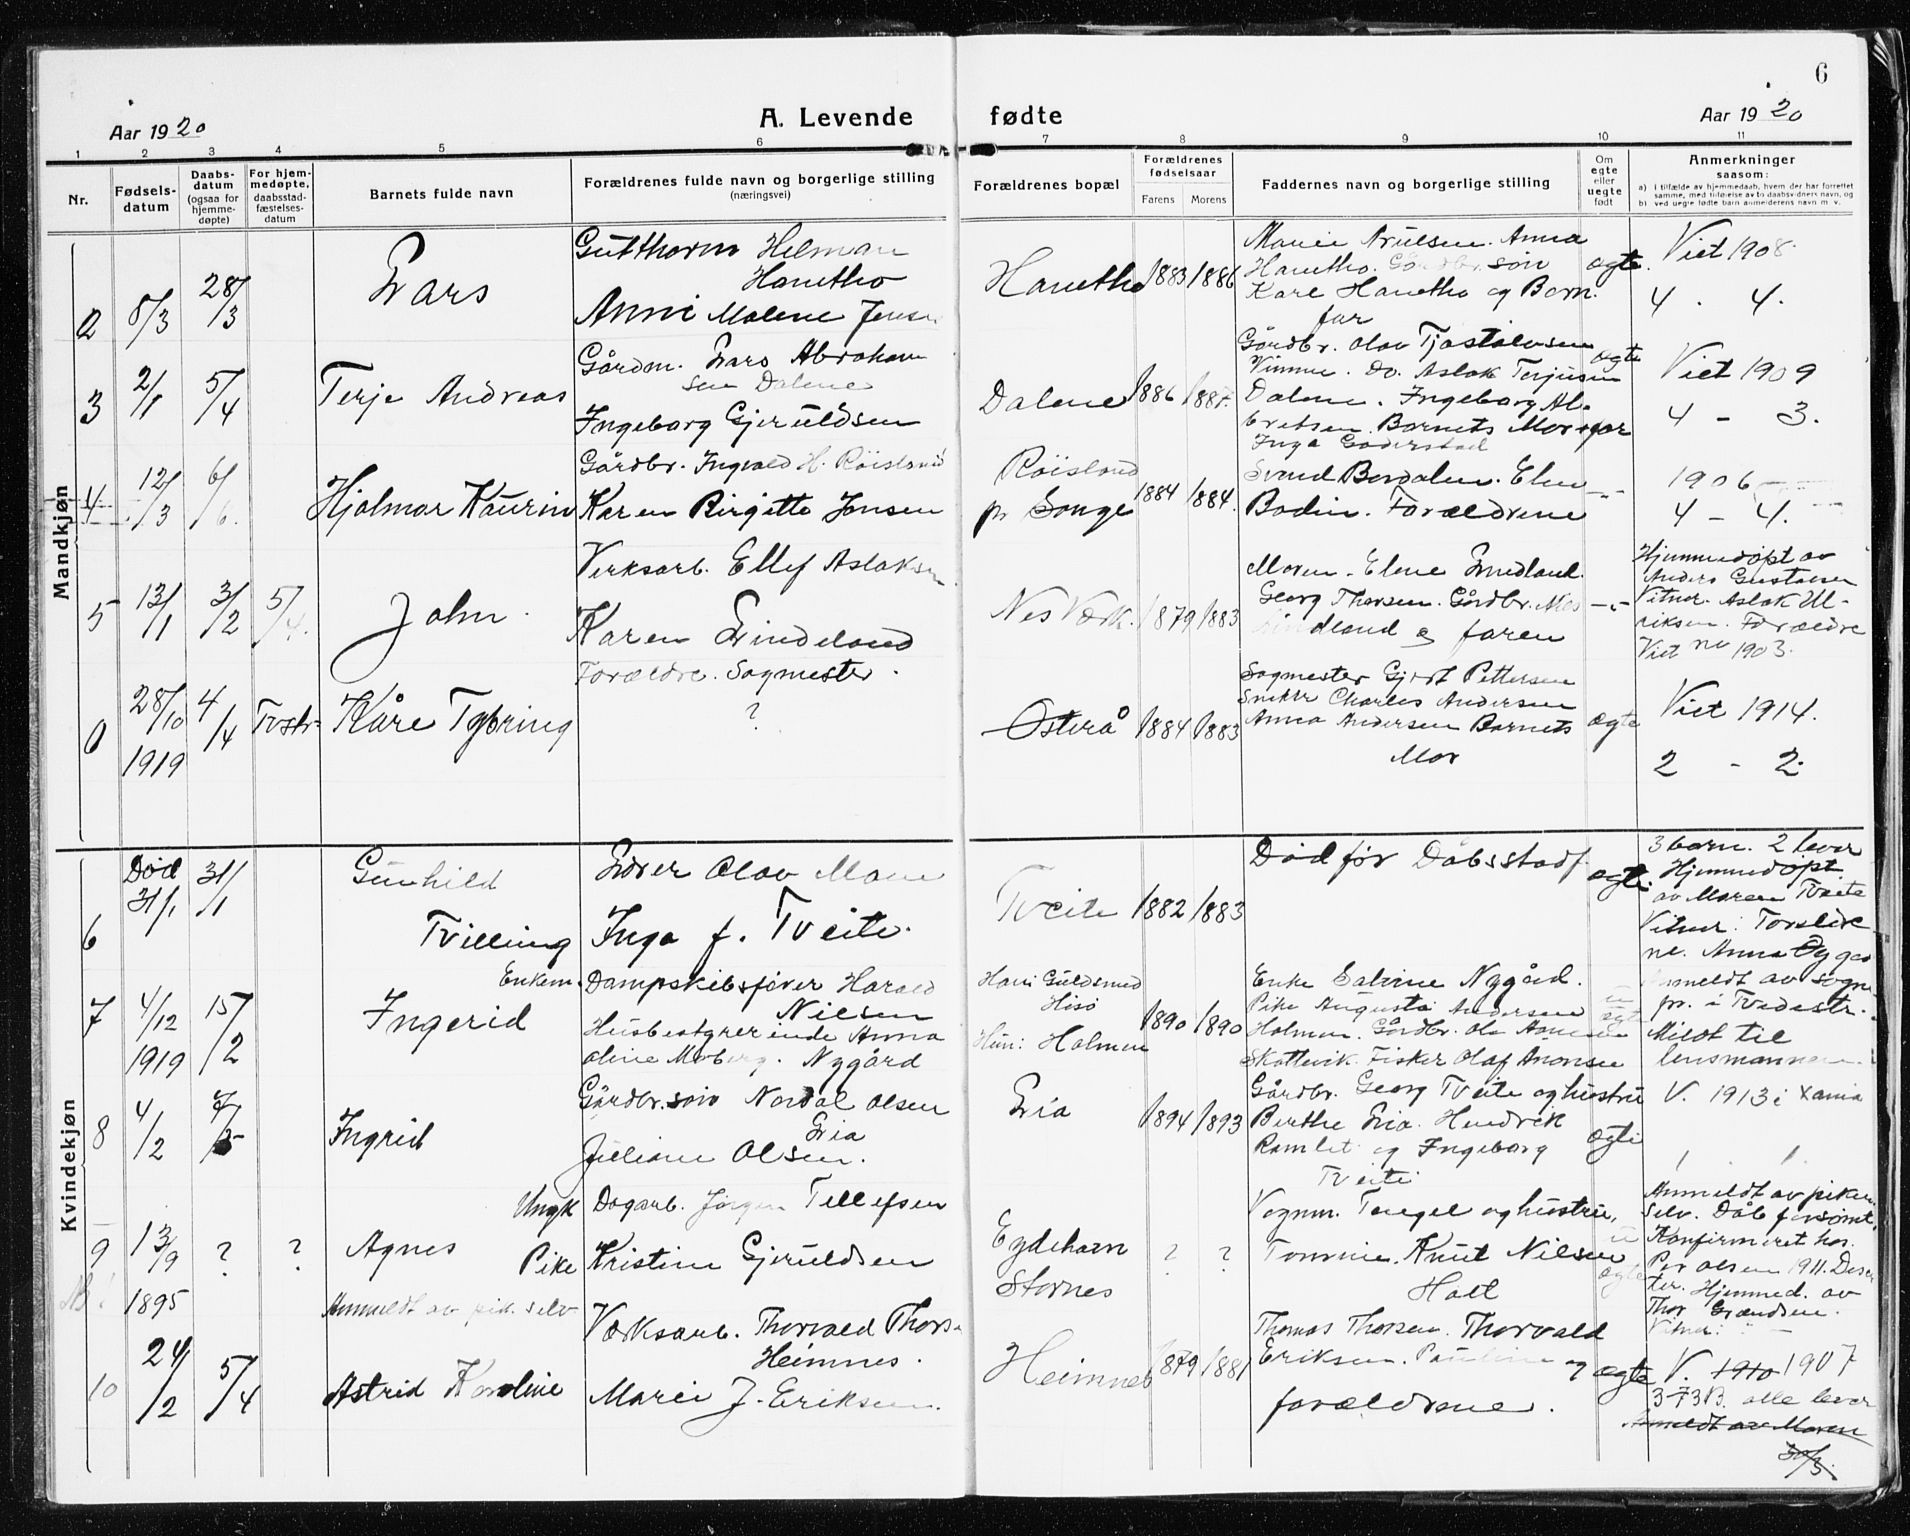 6
Aar 1920
A. Levende fødte
Aar 1920
1 2 3 4 5 6 7 8 9 10 11
Nr.
Fødsels-
datum
Daabs-
datum
(ogsaa for
hjemme-
døpte)
For hjem-
medøpte,
daabsstad-
fæstelses-
datum
Barnets fulde navn
Forældrenes fulde navn og borgerlige stilling
(næringsvei)
Forældrenes bopæl
Forældrenes
fødselsaar
Farens Morens
Faddernes navn og borgerlige stilling
Om
egte
eller
uegte
født
Anmerkninger
saasom:
a) i tilfælde av hjemmedaab, hvem der har forrettet
samme, med tilføielse av to daabsvidners navn, og
b) ved uegte fødte barn anmelderens navn m. v.
Mandkjøn
2
8/3
28/3
Lars
Gutthorm Helman
Hanetho
Anne Malene Jensen
Hanetho
1883 1886
Anna
Hanetho. Gårdbr. søn
Kare Hanetho og Barn.
far
ægte.
Viet 1908.
4 . 4.
3
2/1
5/4
Terje Andreas
Gårdm. Lars Abraham
sen Dalene
Ingeborg Gjeruldsen
Dalene
1886 1887.
Gårdbr. Olav Tjøstolvsen
Do. Aslak Terjusen
Dalene. Ingeborg Al-
bretsen. Barnets Mor + far
ægte
Viet 1909
4 - 3.
4
12/3
6/6.
Hjalmar Kaurin
Inga Goderstad
Gårdbr. Ingvald H. Røisland
Karen Birgitte Jensen
Røisland
pr Songe
1884 1884.
Svend Berdalen. Elen
Bodin. Forældrene
-"-
1906
4 - 4.
5
13/1
3/2
5/4.
John.
Verksarb. Ellef Aslaksen
Karen Lindeland
Nes Værk.
1879 1883
Moren. Elene Lindland.
Georg Thorsen. Gårdbr.
Lindland og faren
-"-
Hjemmedøpt av
Anders Gustavsen
Vitner. Aslak Ul-
riksen. Forældre
Viet nv 1903.
6
28/10
1919
4/4
Tvstr.
Kåre Tybring
Forældre. Sagmester.
?
Østerå
1884 1883
Sagmester Gjert Pettersen
Snekker Charles Andersen
Anna Andersen Barnets
Mor
ægte
Viet 1914.
2 - 2.
Kvindekjøn
6
Død
31/1
31/1
Gunhild
Tvilling
Lærer Olav Moen
Inga f. Tveite.
Tveite
1882 1883
Død før Dåbsstadf.
ægte.
3 barn. 2 lever
Hjemmedøpt
av Maren Tveite
Vitner:
Anna
7
4/12
1919
15/2
Ingerid
Enkem. Dampskibsfører Harald
Nielsen
Husbestyrerinde Anna
oline Moberg. Nygård
Han: Guldsmed
Hisø
Hun: Holmen
1890 1890
Enke Salvine Nygård.
Pike Augusta Andersen
Holmen. Gårdbr. Ole
Skottevik. Fisker Olaf Anonsen
u
ægte
Anmeldt av sogne
pr. i Tvedestr.
Meldt til
lensmannen.
8
4/2
7/3
Ingrid
Gårdbr. søn Nordal Olsen
Lia
Juliane Olsen.
Lia
1894 1893
Gårdbr. Georg Tveite og hustru
Berthe Lia. Hendrik
Ramlet og Ingeborg
Tveite
ægte
V. 1913 i Xania
9
NB!
13/9
1895
?
?
Agnes
Anmeldt av pik. selv
Ungk. Dagarb. Jørgen Tellefsen
Pike Kristine Gjeruldsen
Eydehavn
Stornes
? ?
Vognm. Tengel og hustru,
Tomine. Knut Nilsen
Holt
u
ægte
Anmeldt av piken
selv. Dåb forsømt.
Konfirmeret hos.
Per Olsen 1911.
Hjemmed. av
Thor
Vitner:
10
24/2
5/4
Astrid Karoline
Værksarb. Thorvald Thors-
Heimnes.
Marie J. Eriksen.
Heimnes
1879 1881
Thomas Thorsen. Thorvald
Eriksen. Pauline og
forældrene.
ægte
V. 1910 1907
3-73 B. alle lever
Anmeldt av Moren
30/3.